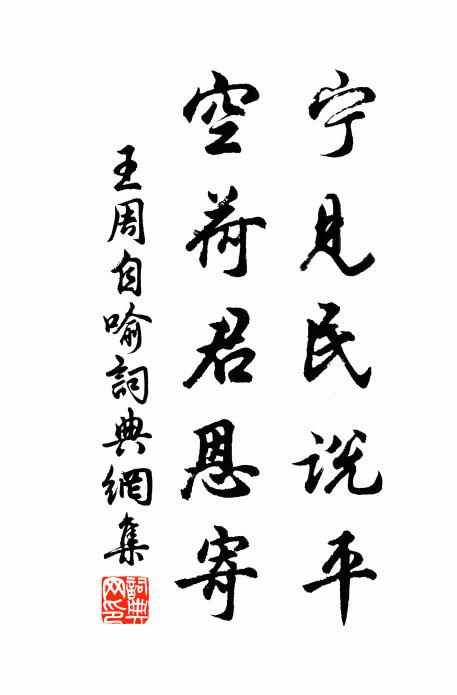 宁見民説平
空荷君恩寄
王周自喻詞典網集
詞典网印